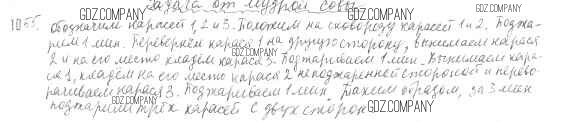 Задача от мудрой совы
1055. Обозначим карасей 1, 2 и 3. Положим на сковороду карасей 1 и 2. Поджа-
рим 1 мин. Перевернём карася 1 на другую сторону, вынимаем карася
2 и на его место кладём карася 3. Поджариваем 1 мин. Вынимаем кара-
ся 1, кладём на его место карася 2 неподжаренной стороной и перево-
рачиваем карася 3. Поджариваем 1 мин. Таким образом, за 3 мин
поджарили трёх карасей с двух сторон
GDZ.COMPANY
GDZ.COMPANY
GDZ.COMPANY
GDZ.COMPANY
GDZ.COMPANY
GDZ.COMPANY
GDZ.COMPANY